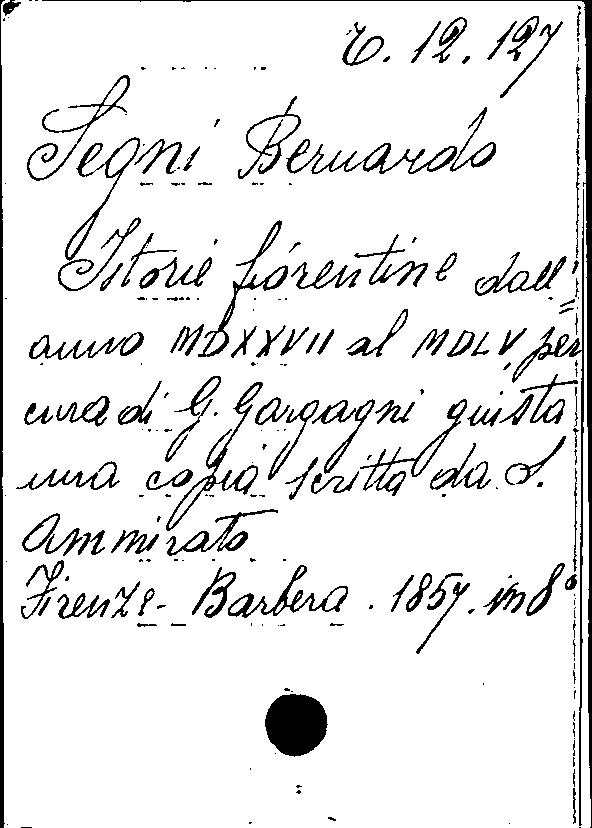 T. 12. 127
Segni Bernardo
Istorie fiorentine dall'
anno MDXXVII al MDLV, per
cura di G. Gargagni giusta
una copia scritta da S.
Ammirato
Firenze - Barbera. 1857. in 8°